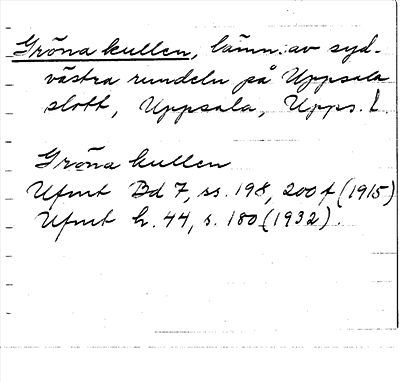 Gröna kullen, lämn. av syd-
västra rundeln på Uppsala
slott, Uppsala, Upps. l.
Gröna kullen
Ufmt Bd 7, ss. 198, 200 f (1915)
Ufmt h. 44, s. 180 (1932).